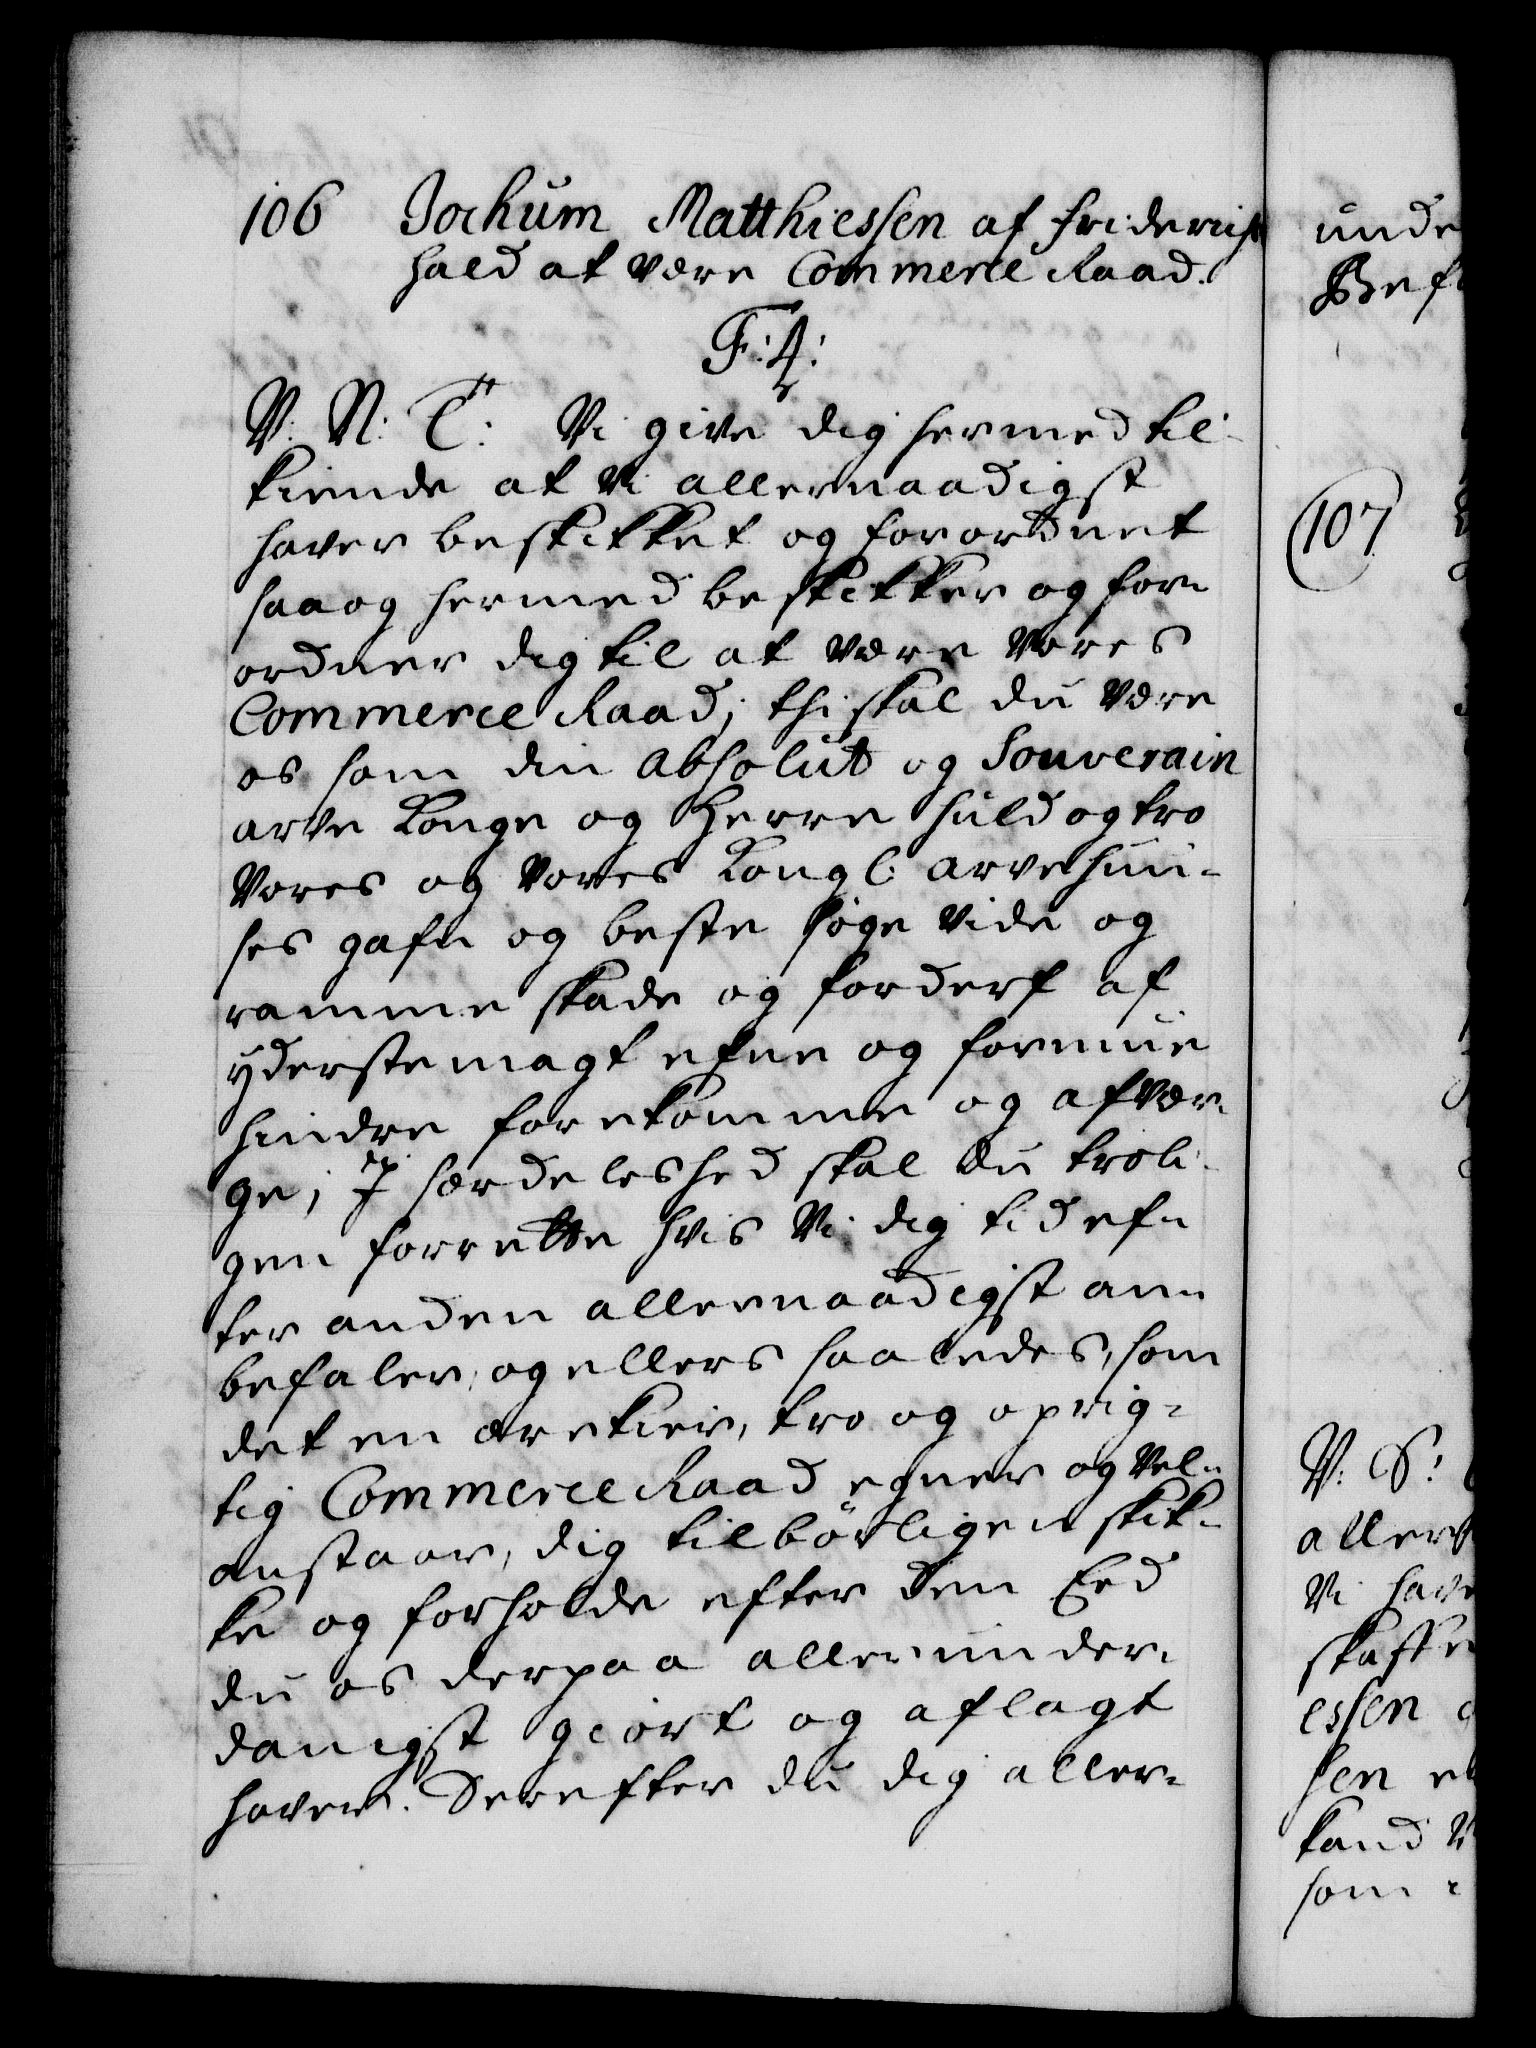 106 Jochum Matthiessen af Friderichs
hald at være Commerce Raad.
F: 4:
V. N: T: Vi give dig hermed til-
kiende at Vi allernaadigst
haver beskikket og forordnet
saa og hermed beskikker og for-
ordner dig til at være Vores
Commerce Raad; thi skal du være
os som din absolut og Souverain
arve Konge og Herre huld og tro
Vores og Vores Kongl: arvehuu-
ses gafn og beste søge vide og
ramme skade og forderf af
yderste magt efne og formue
hindre forekomme og afvær-
ge; J særdeleshed skal du troli-
gen forrette hvis Vi dig tid ef-
ter anden allernaadigst an-
befaler, og ellers saaledes, som
det en ærekier, tro og oprig-
tig Commerce Raad egner og vel-
anstaar, dig tilbørligen skik-
ke og forholde efter den Eed
du os derpaa allerunder-
danigst giort og aflagt
haver. Derefter du dig aller-
unde
Bef
107
V. S:
aller
Vi have
skaffe
essen
sen
kand V
som